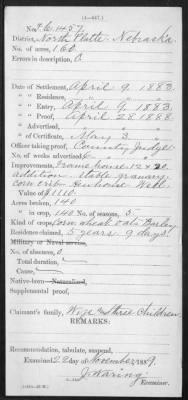 (4—447.)
No. F.C. 1457.
District, North Platte Nebraska
No. of acres, 160
Errors in description, 0
Date of Settlement, April 9, 1883
" of Residence, " "
" of Entry, April 9 1883
" of Proof, April 28 1888
" Advertised,
" of Certificate, May 3
Officer taking proof, County Judge
No. of weeks advertised, 6
Improvements, Frame house 12 x 20
addition stable granary
corn crib henhouse Well
Value $1110
Acres broken, 140
" in crop, 140 No. of seasons, 5
Kind of crops, Corn wheat oats Barley
Residence claimed, 5 years 9 days
Military or Naval service,
No. of absences, 0
Total duration, "
Cause,
Native-born Naturalized,
Supplemental proof,
Claimant's family, Wife & three Children
REMARKS:
Recommendation, tabulate, suspend,
Examined 22 day of November 1889.
J. Waring
Examiner.